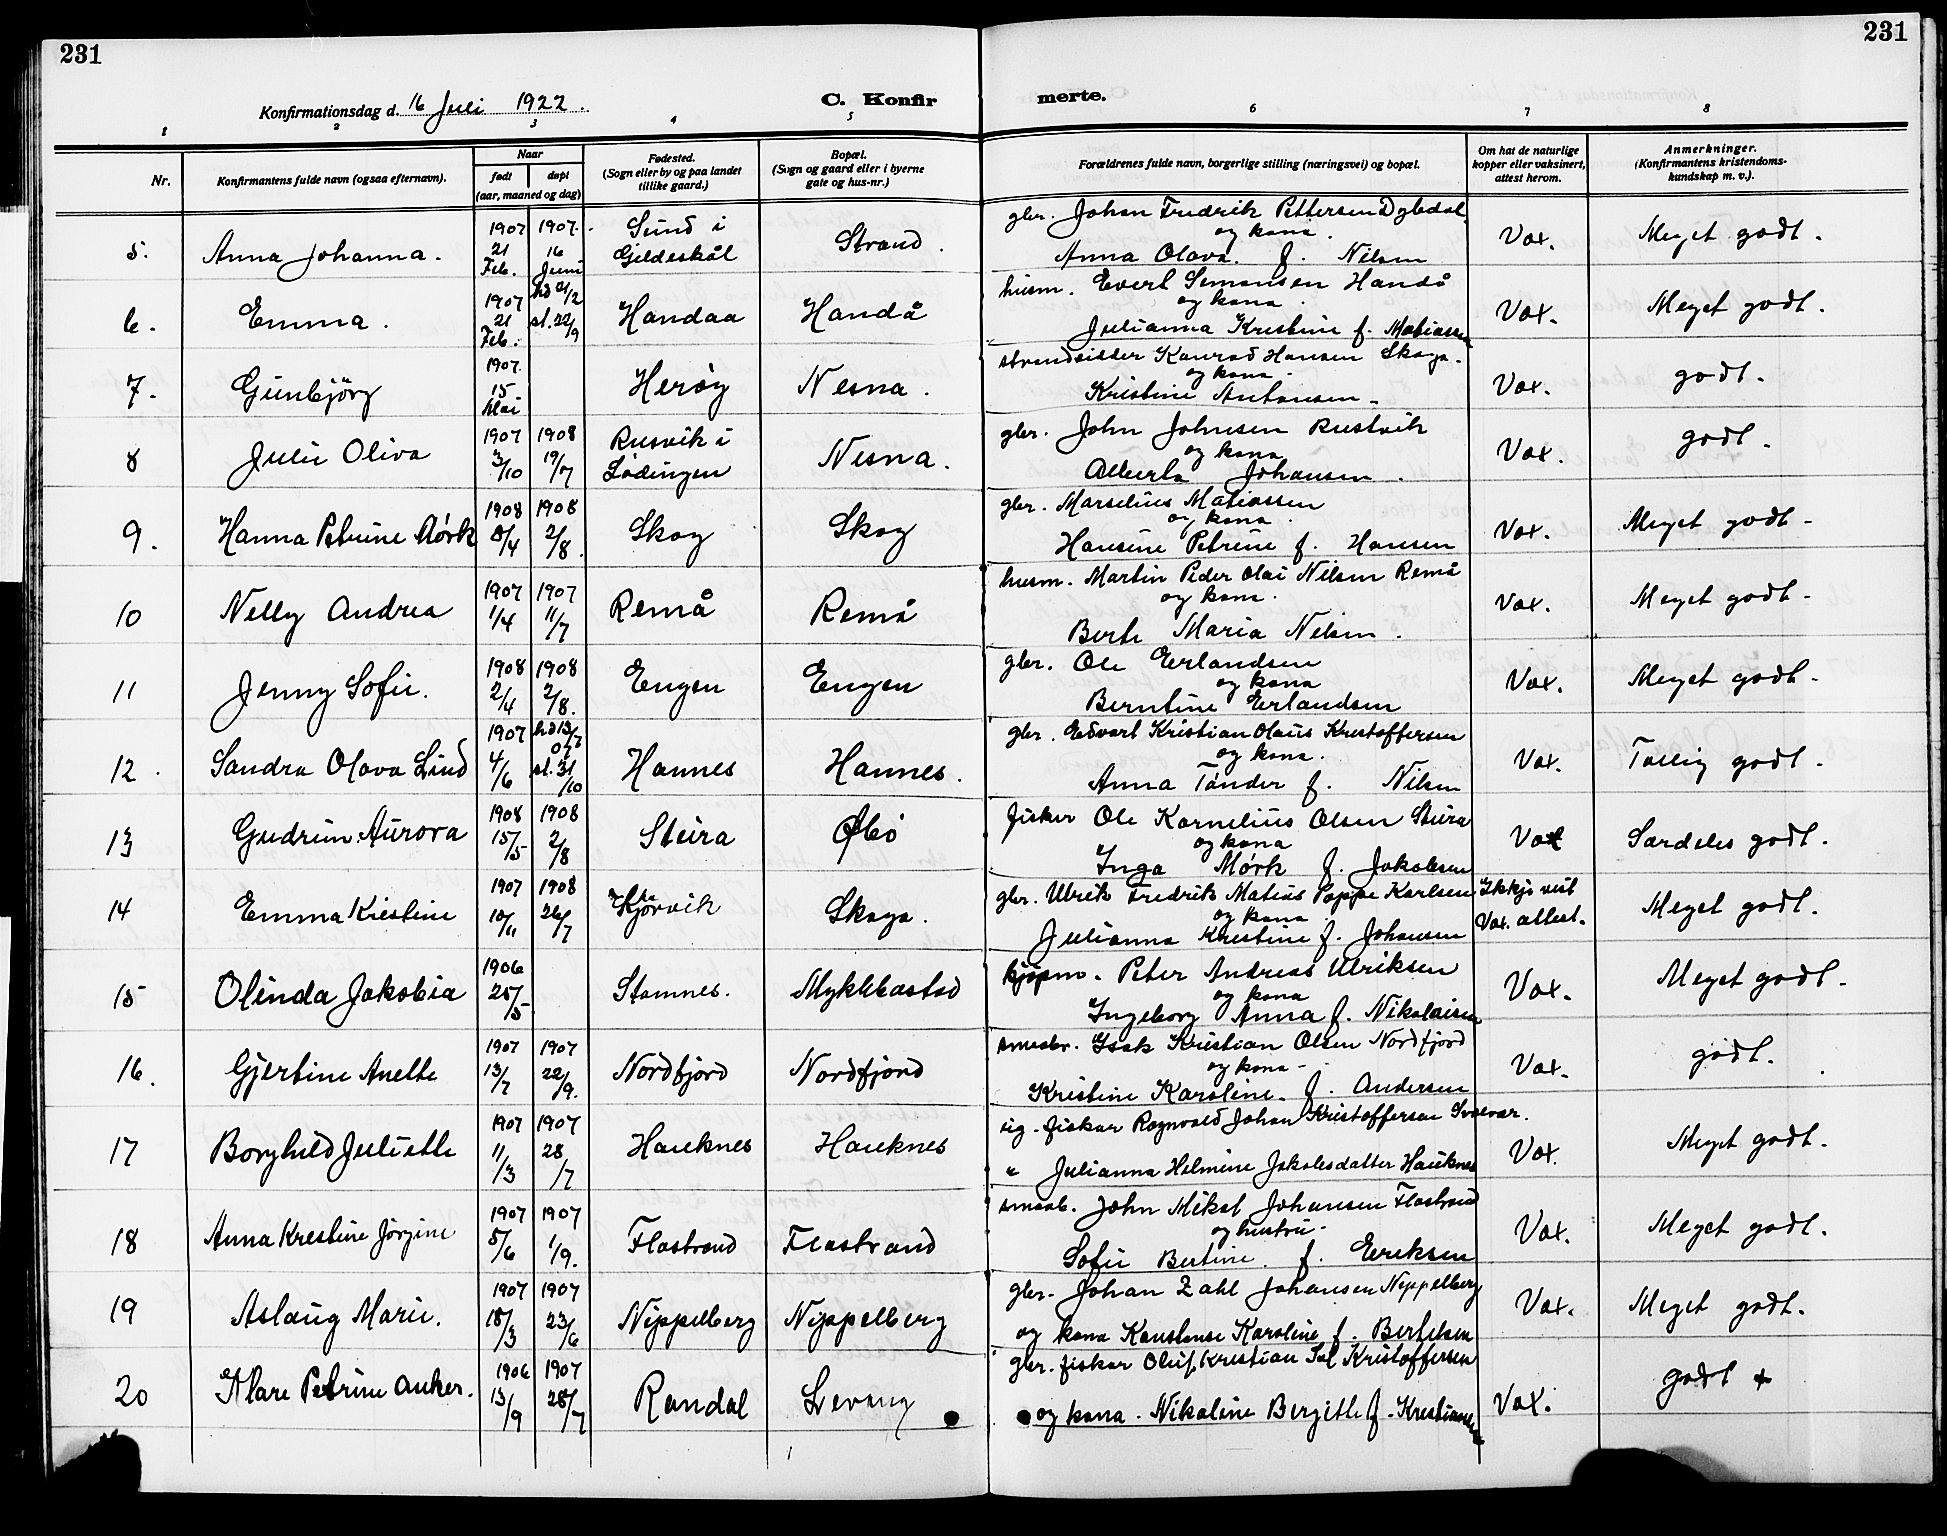 231
231
Konfirmationsdag d. 16 Juli 1922.
C. Konfirmerte.
1 2 3 4 5 6 7 8
Nr.
Konfirmantens fulde navn (ogsaa efternavn).
Naar
født
døpt
(aar, maaned og dag)
Fødested.
(Sogn eller by og paa landet
tillike gaard.)
Bopæl.
(Sogn og gaard eller i byerne
gate og hus-nr.)
Forældrenes fulde navn, borgerlige stilling (næringsvei) og bopæl.
Om hat de naturlige
kopper eller vaksinert,
attest herom.
Anmerkninger.
(Konfirmantens kristendoms-
kundskap m. v.).
5. Anna Johanna. 1907 21 Feb. 1907. 16 Juni Sund i Gildeskål Strand.
gbr. Johan Fredrik Pettersen
og kona.
Anna Olava. f. Nilsen
Vax. Meget godt.
6. Emma. 1907 21 Feb. hd 21/2 st. 22/9 Handaa Handå
husm. Evert Simonsen Handå
og kona.
Julianna Kristine f. Matiassen
Vax. Meget godt.
7. Gunbjörg 1907. 15 Mai Herøy Nesna.
strandsidder Konrad Hansen Skaga.
og kona.
Kristine Antonsen.
Vax. godt.
8 Julie Oliva 1907 3/10 1908 19/7 Rusvik i Lødingen Nesna.
gbr. John Johnsen Rustvik
og kona
Alberta Johansen.
Vax. godt.
9. Hanna Petrine Mörk 1908 8/4 1908 2/8. Skog Skog
gbr. Marselius Matiassen
og kona.
Hansine Petrine f. Hansen
Vax. Meget godt.
10 Nelly Andrea 1907 1/4 1907 11/7 Remå Remå
husm. Martin Peder Olai Nilsen Remå
og kona.
Berte Maria Nilsen.
Vax. Meget godt.
11 Jenny Sofie. 1908 2/4 1908 2/8. Engen Engen
gbr. Ole Erlandsen
og kona
Berntine Erlandsen
Vax. Meget godt.
12. Sandra Olava Lind 1907 4/6 Hannes Hannes.
gbr. Edvart Kristian Olaus Kristoffersen
og kona.
Anna Tønder f. Nilsen
Vax. Tollig godt.
13 Gudrun Aurora 1908 15/5 1908 2/8 Stura Øbø
fisker Ole Kornelius Olsen Stura
og kona
Inga Mørk f. Jakobsen
Vax Sardeles godt.
14 Emma Kristine 1907 10/11 1908 26/7 Skaga.
gbr. Ulrik Fredrik Matius Poppe Karlsen
og kona.
Julianna Kristine f. Johansen
Ikkje vist
Vax. attest. Meget godt.
15 Olinda Jakobia 1906 25/5 Stamnes. Mykkbastad
kjøpm. Peter Andreas Ulriksen
og kona
Ingeborg Anna f. Nikolaisen
Vax. Meget godt.
16. Gjertine Anette 1907 13/7 1907 22/9. Nordfjord Nordfjord
smaabr. Isak Kristian Olsen Nordfjord
og kona.
Kristine Karoline. f. Andersen
Vax. godt.
17 Borghild Juliette 1907 11/3 1907 28/7 Hauknes Hauknes
ug. fiskar Rognvald Johan Kristoffersen Svolvær.
" Julianna Helmine Jakobsdatter Hauknes
Vax. Meget godt.
18 Anna Kristine Jörgine 1907 5/6 1907 1/9. Flostrand Flostrand
smaab. John Mikal Johansen Flostrand
og hustru.
Sofie Bertine. f. Eriksen
Vax. Meget godt.
19 Aslaug Marie. 1907 18/3 1907 23/6 Nyppelberg Nyppelberg
gbr. Johan Zahl Johansen Nyppelberg
og kona Konstanse Karoline f. Bertelsen
Vax. Meget godt.
20 Klare Petrine Anker. 1906 13/9 1907 28/7 Randal Levang
gbr. fiskar Oluf Kristian Kristoffersen
og kona. Nikoline Bergitte f. Kristiansen
Vax. godt +